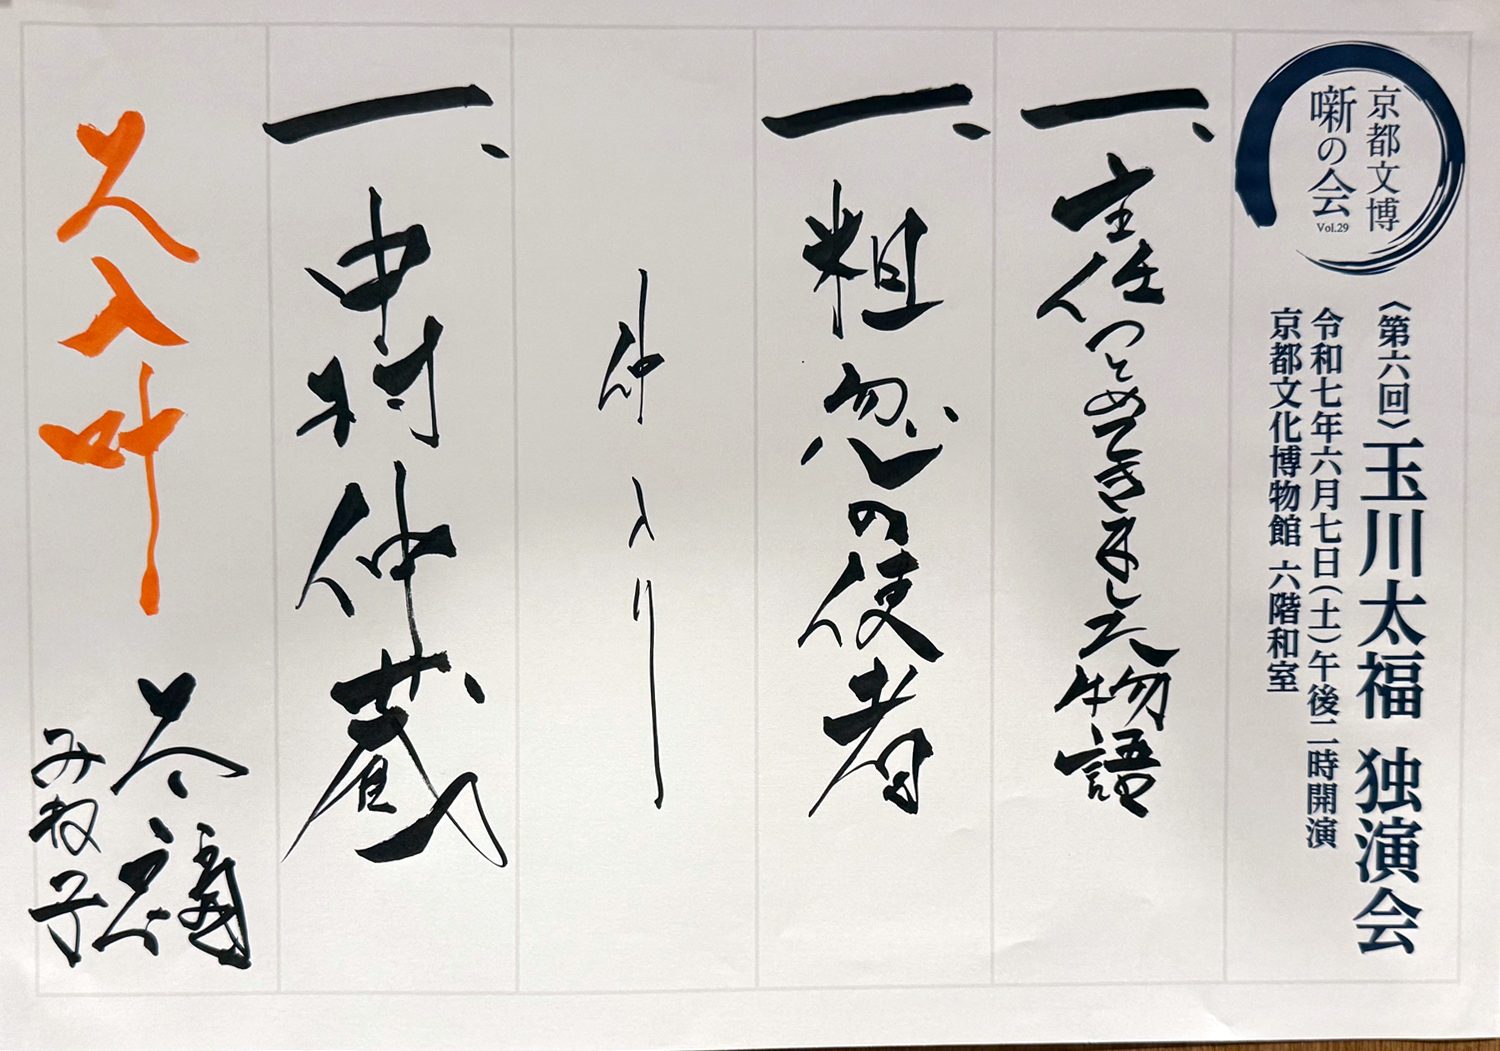 京都文博
噺の会
Vol.29
〈第六回〉玉川太福 独演会
令和七年六月七日(土)午後二時開演
京都文化博物館 六階和室
一、主任つとめてきました物語
一、粗忽の使者
仲入り
一、中村仲蔵
大入叶
太福
みね子